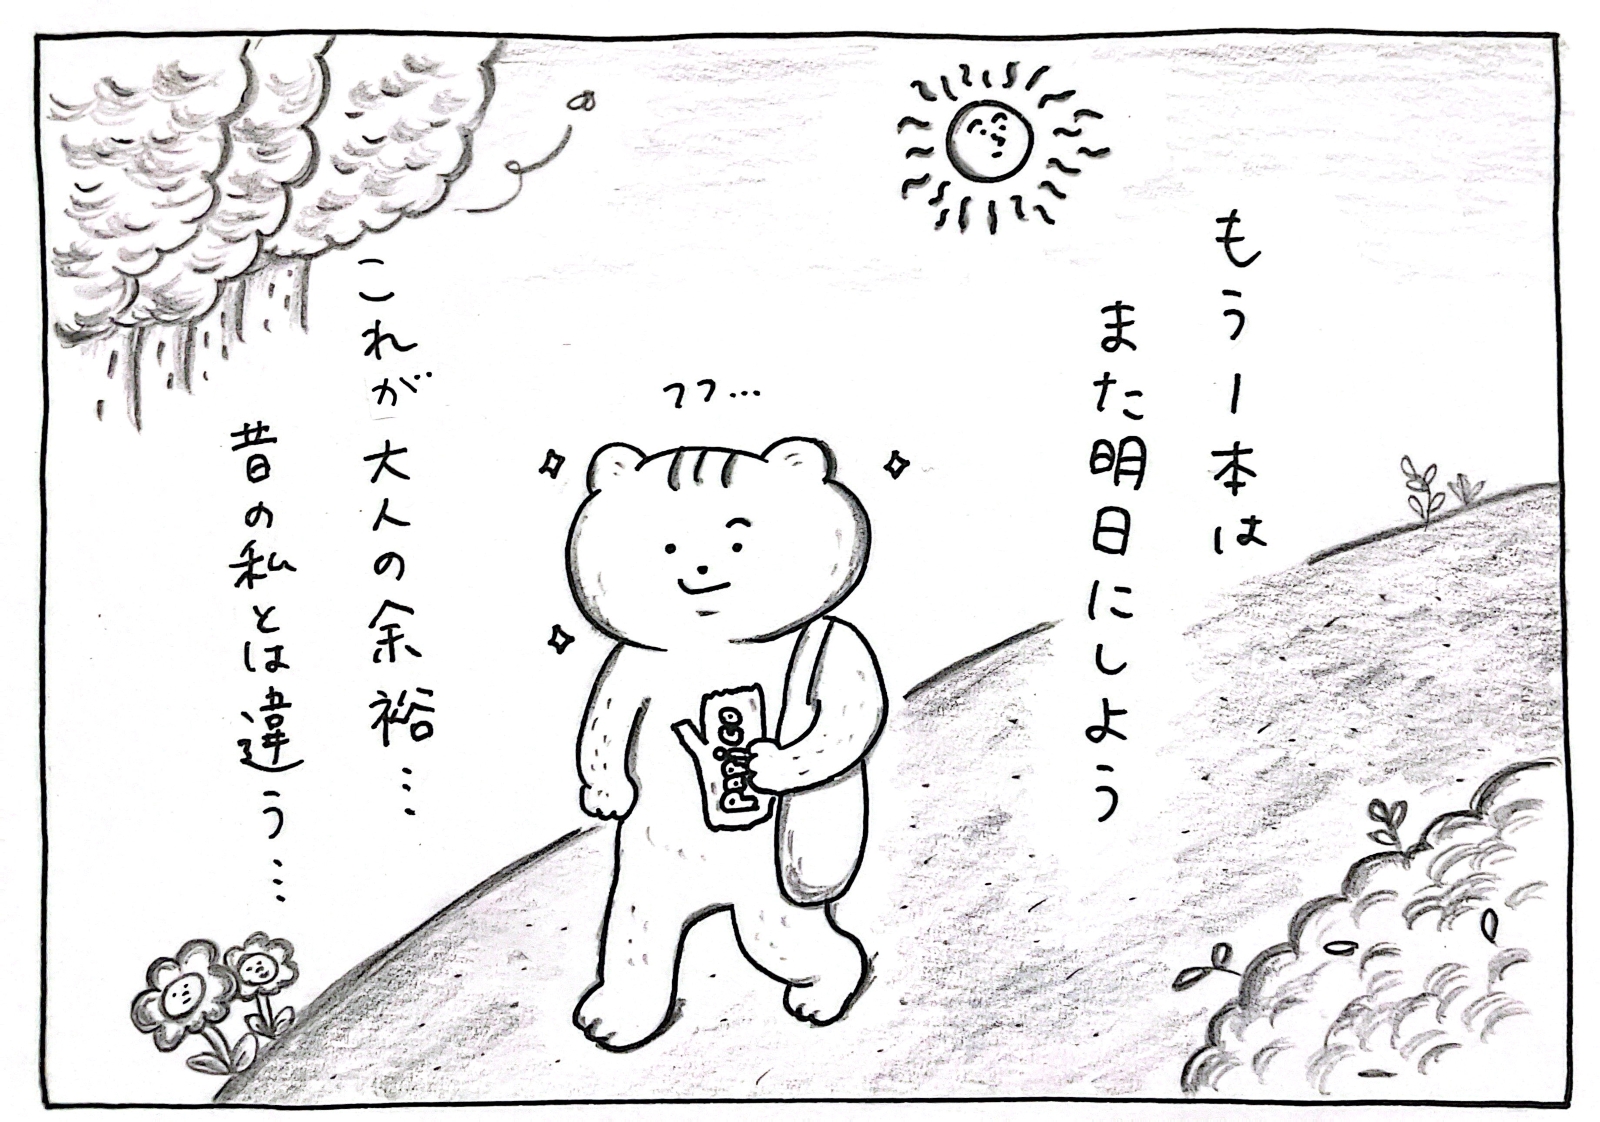 もう1本は
また明日にしよう
フフ…
PAPiCo
これが大人の余裕…
昔の私とは違う…